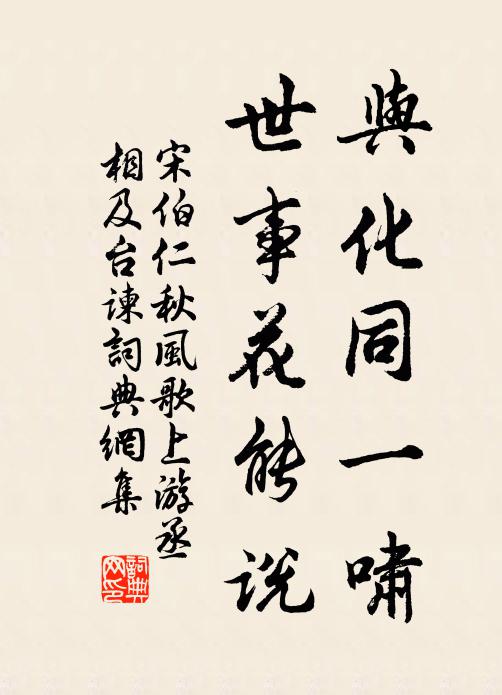 與化同一嘯
世事花能説
宋伯仁秋風歌上游丞
相及台諫詞典網集
詞典
网印